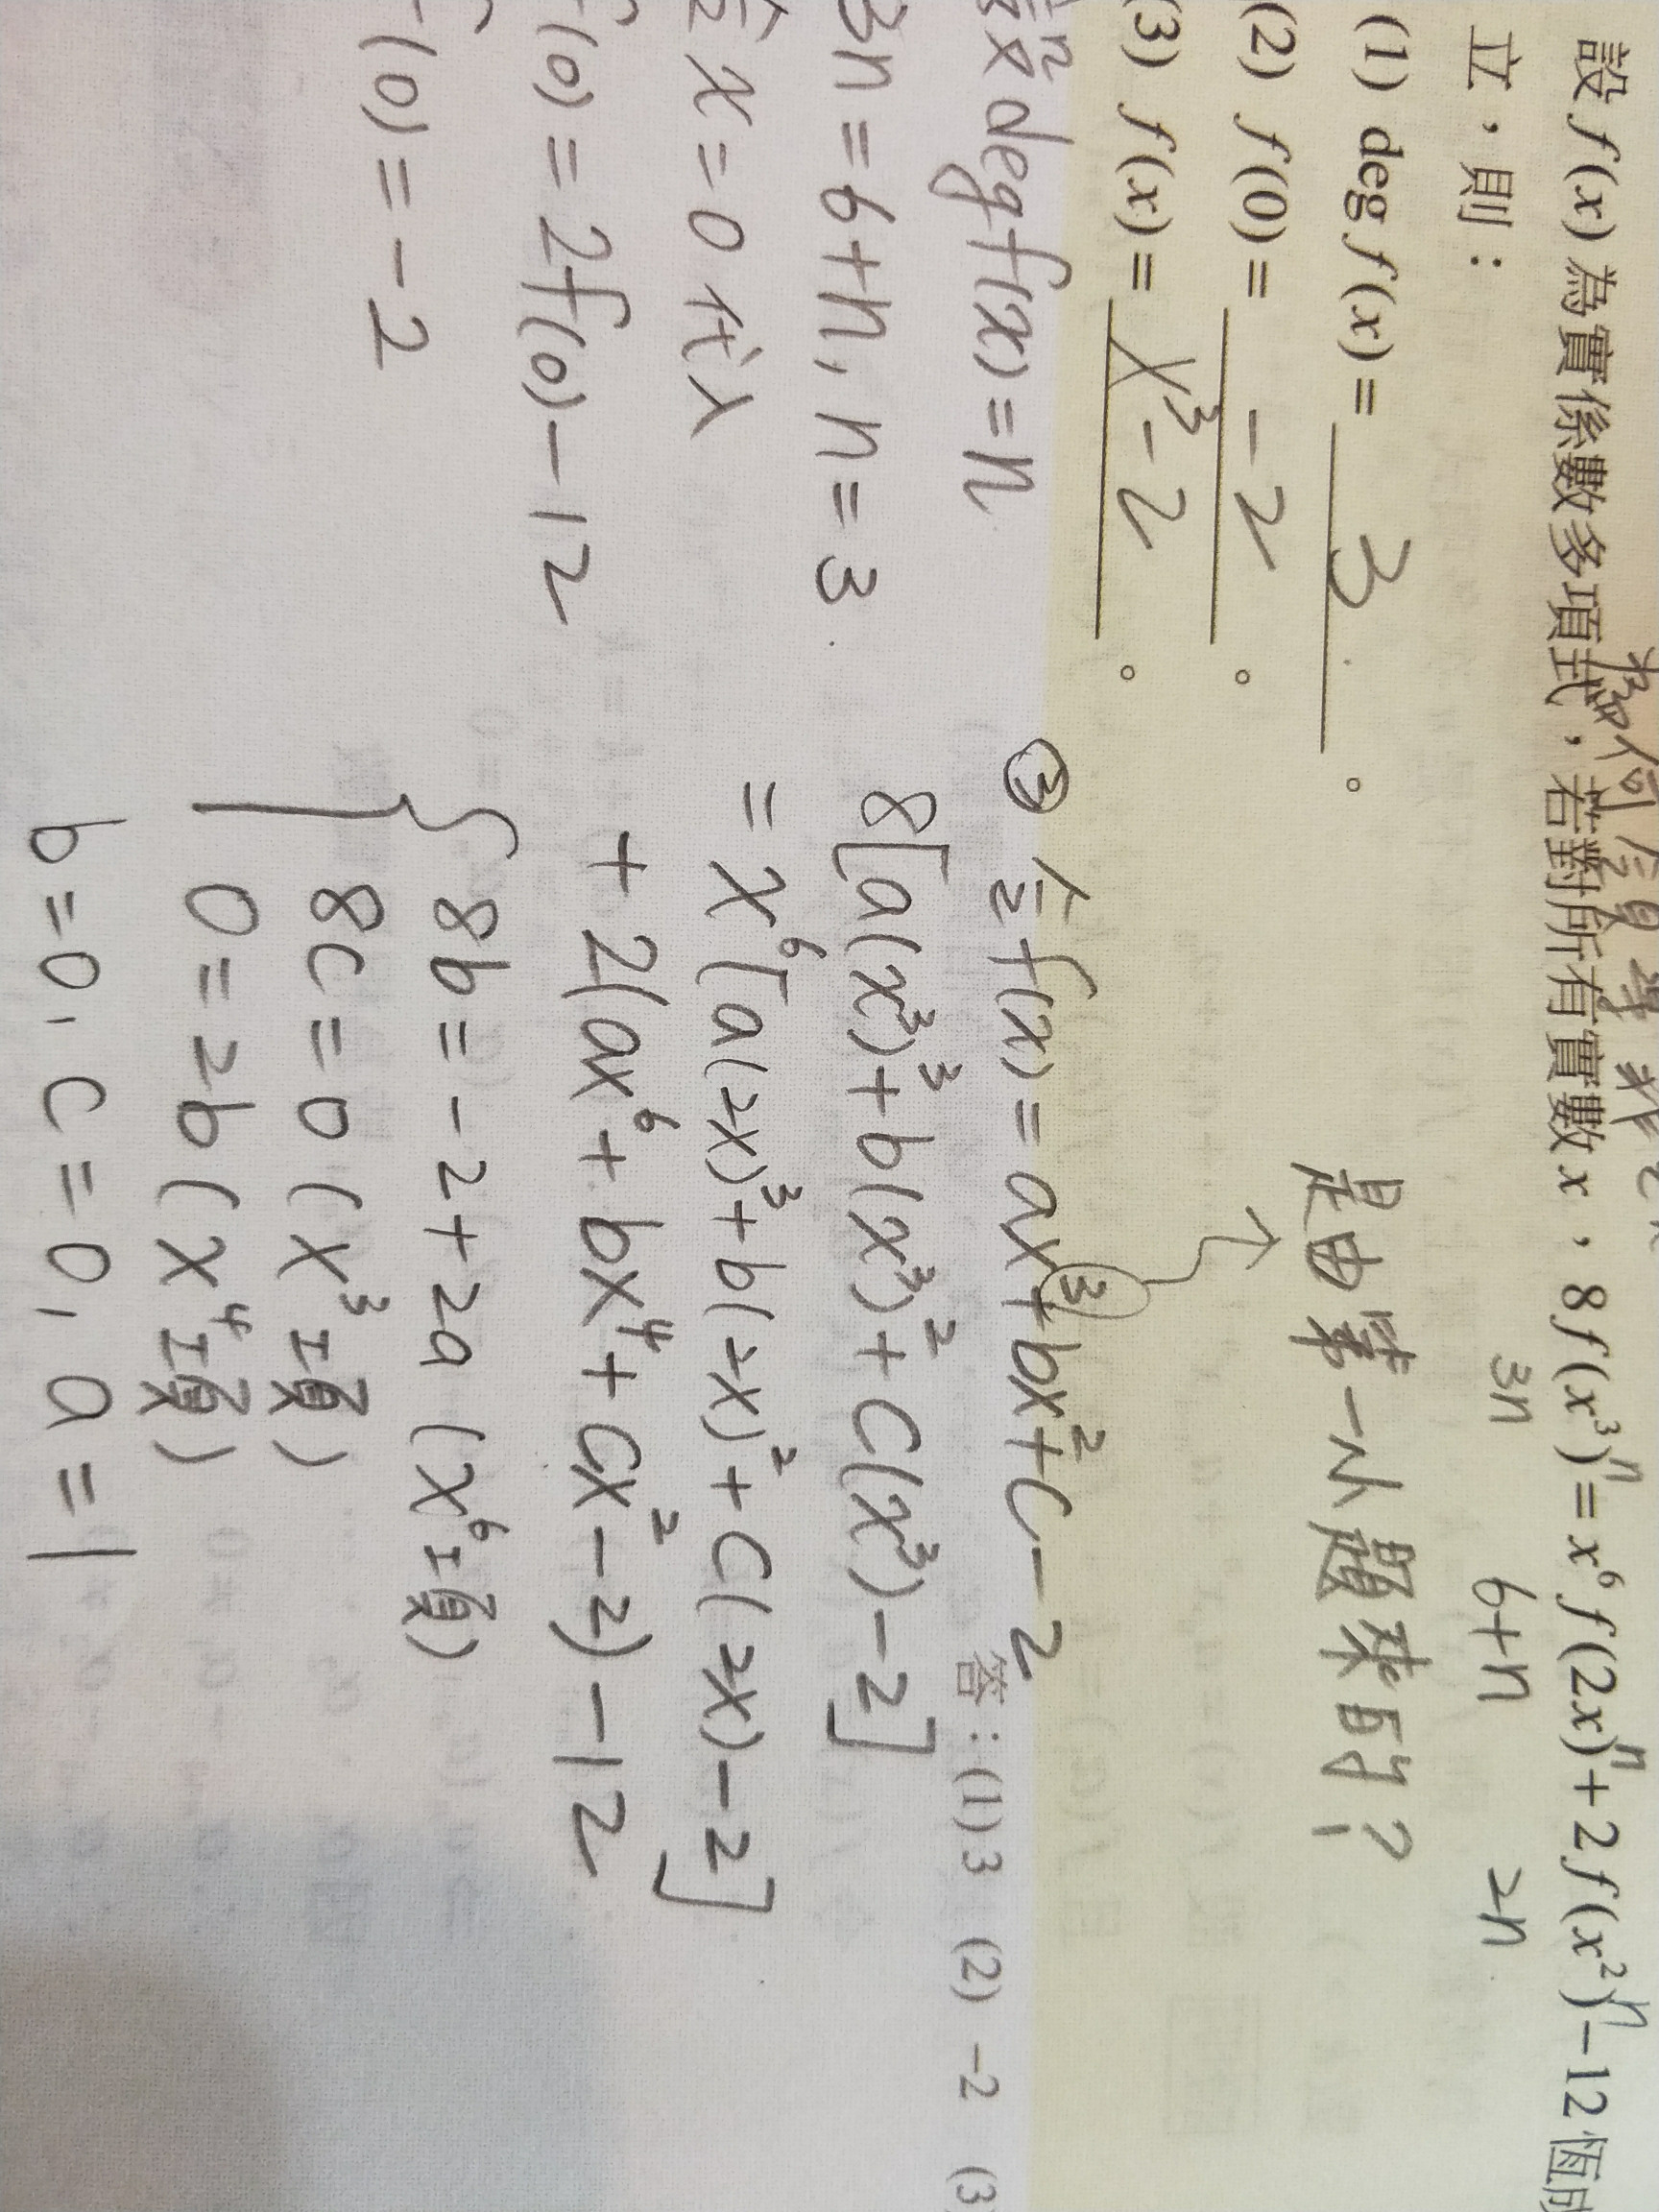 為何令
設 f(x) 為實係數多項式，若對所有實數 x，8f(x³)ⁿ = x⁶f(2x)ⁿ + 2f(x²)ⁿ − 12 恆成
3n 6+n 2n
立，則：
(1) deg f(x) = 3 。
是由第一小題來的？
(2) f(0) = −2 。
(3) f(x) = x³−2 。
答：(1) 3 (2) −2 (3)
設 deg f(x) = n
3n = 6+n, n = 3
令 x = 0 代入
f(0) = 2f(0) − 12
f(0) = −2
③ 令 f(x) = ax³+bx²+c−2
8[a(x³)³+b(x³)²+c(x³)−2]
= x⁶[a(2x)³+b(2x)²+c(2x)−2]
+ 2(ax⁶+bx⁴+cx²−2)−12
8b = −2+2a (x⁶項)
8c = 0 (x³項)
0 = 2b (x⁴項)
b = 0, c = 0, a = 1